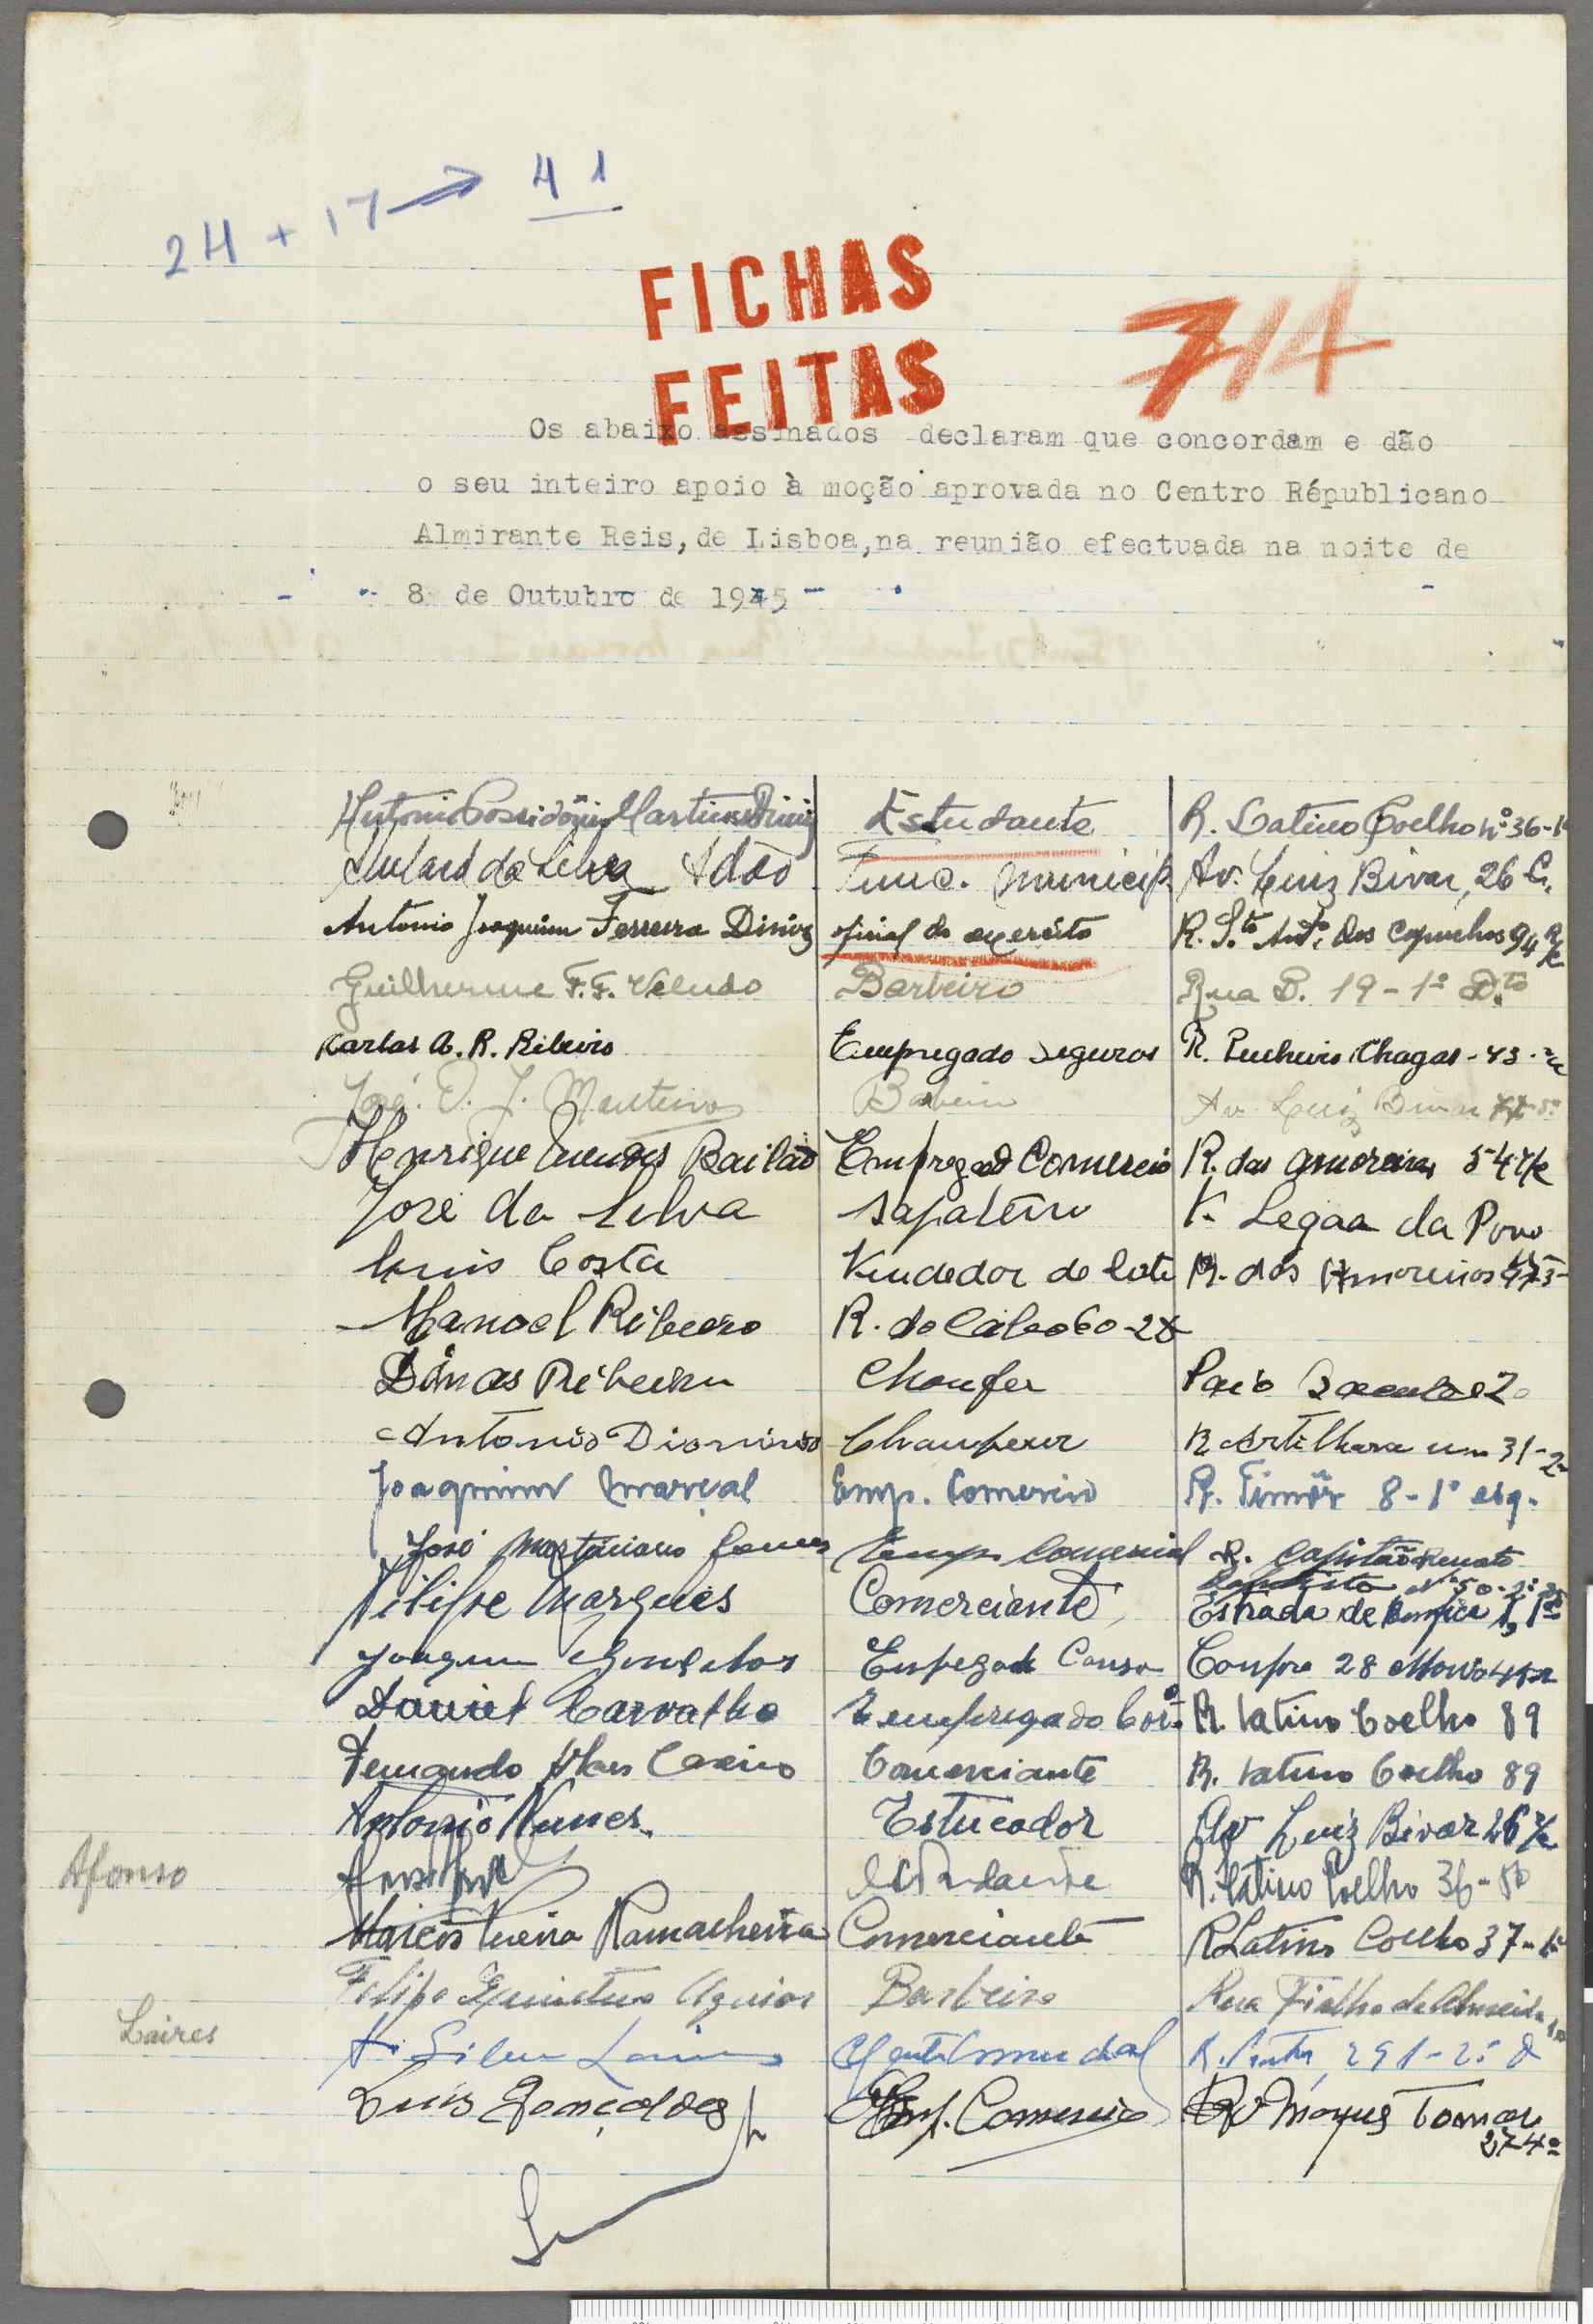 24 + 17 → 41
FICHAS
FEITAS
714
Os abaixo assinados declaram que concordam e dão
o seu inteiro apoio à moção aprovada no Centro Républicano
Almirante Reis, de Lisboa, na reunião efectuada na noite de
8 de Outubro de 1945
Antonio Possidónio Martins Diniz Estudante R. Latino Coelho nº 36-1º
da Silva Adão Func. Municip. Av. Luiz Bivar, 26 C.
Antonio Joaquim Ferreira Diniz oficial do exercito R. Sto Antº dos Capuchos 94 R/c
Guilherme F. F. Veludo Barbeiro Rua D. 19-1º Dto
Carlos A. R. Ribeiro Empregado Seguros R. Pinheiro Chagas - 43
José Monteiro Barbeiro Av. Luiz Bivar
Henrique Mendes Bailão Empregado Comercio R. das Amoreiras 54 r/c
José da Silva Sapateiro da Povo
Luis Costa Vendedor de R. das Amoreiras
Manoel Ribeiro R. do Cabo 60-2º
Dimas Ribeiro Choufer
Antonio Dionisio Chaufeur R Artilharia um 31-2º
Joaquim Marçal Emp. Comercio R. Timôr 8-1º esq.
José Gomes Emp. Comercial R. Capitão Renato
Baptista Nº 50-2º
Filipe Marques Comerciante Estrada de Benfica 1, 1º
Joaquim Gonçalves Empregado 28 Maio
Daniel Carvalho Empregado Coº R. Latino Coelho 89
Fernando Comerciante R. Latino Coelho 89
Antonio Nunes Estucador Av Luiz Bivar 26 r/c
Afonso
Estudante R. Latino Coelho 36
Vieira Ramalheira Comerciante R Latino Coelho 37-1º
Filipe Aguiar Barbeiro Rua Fialho de Almeida
Laires
A. Silva Laires Agente Comercial R. 291-2º D
Luis Gonçalves Emp. Comercio Av Marques Tomar
274º